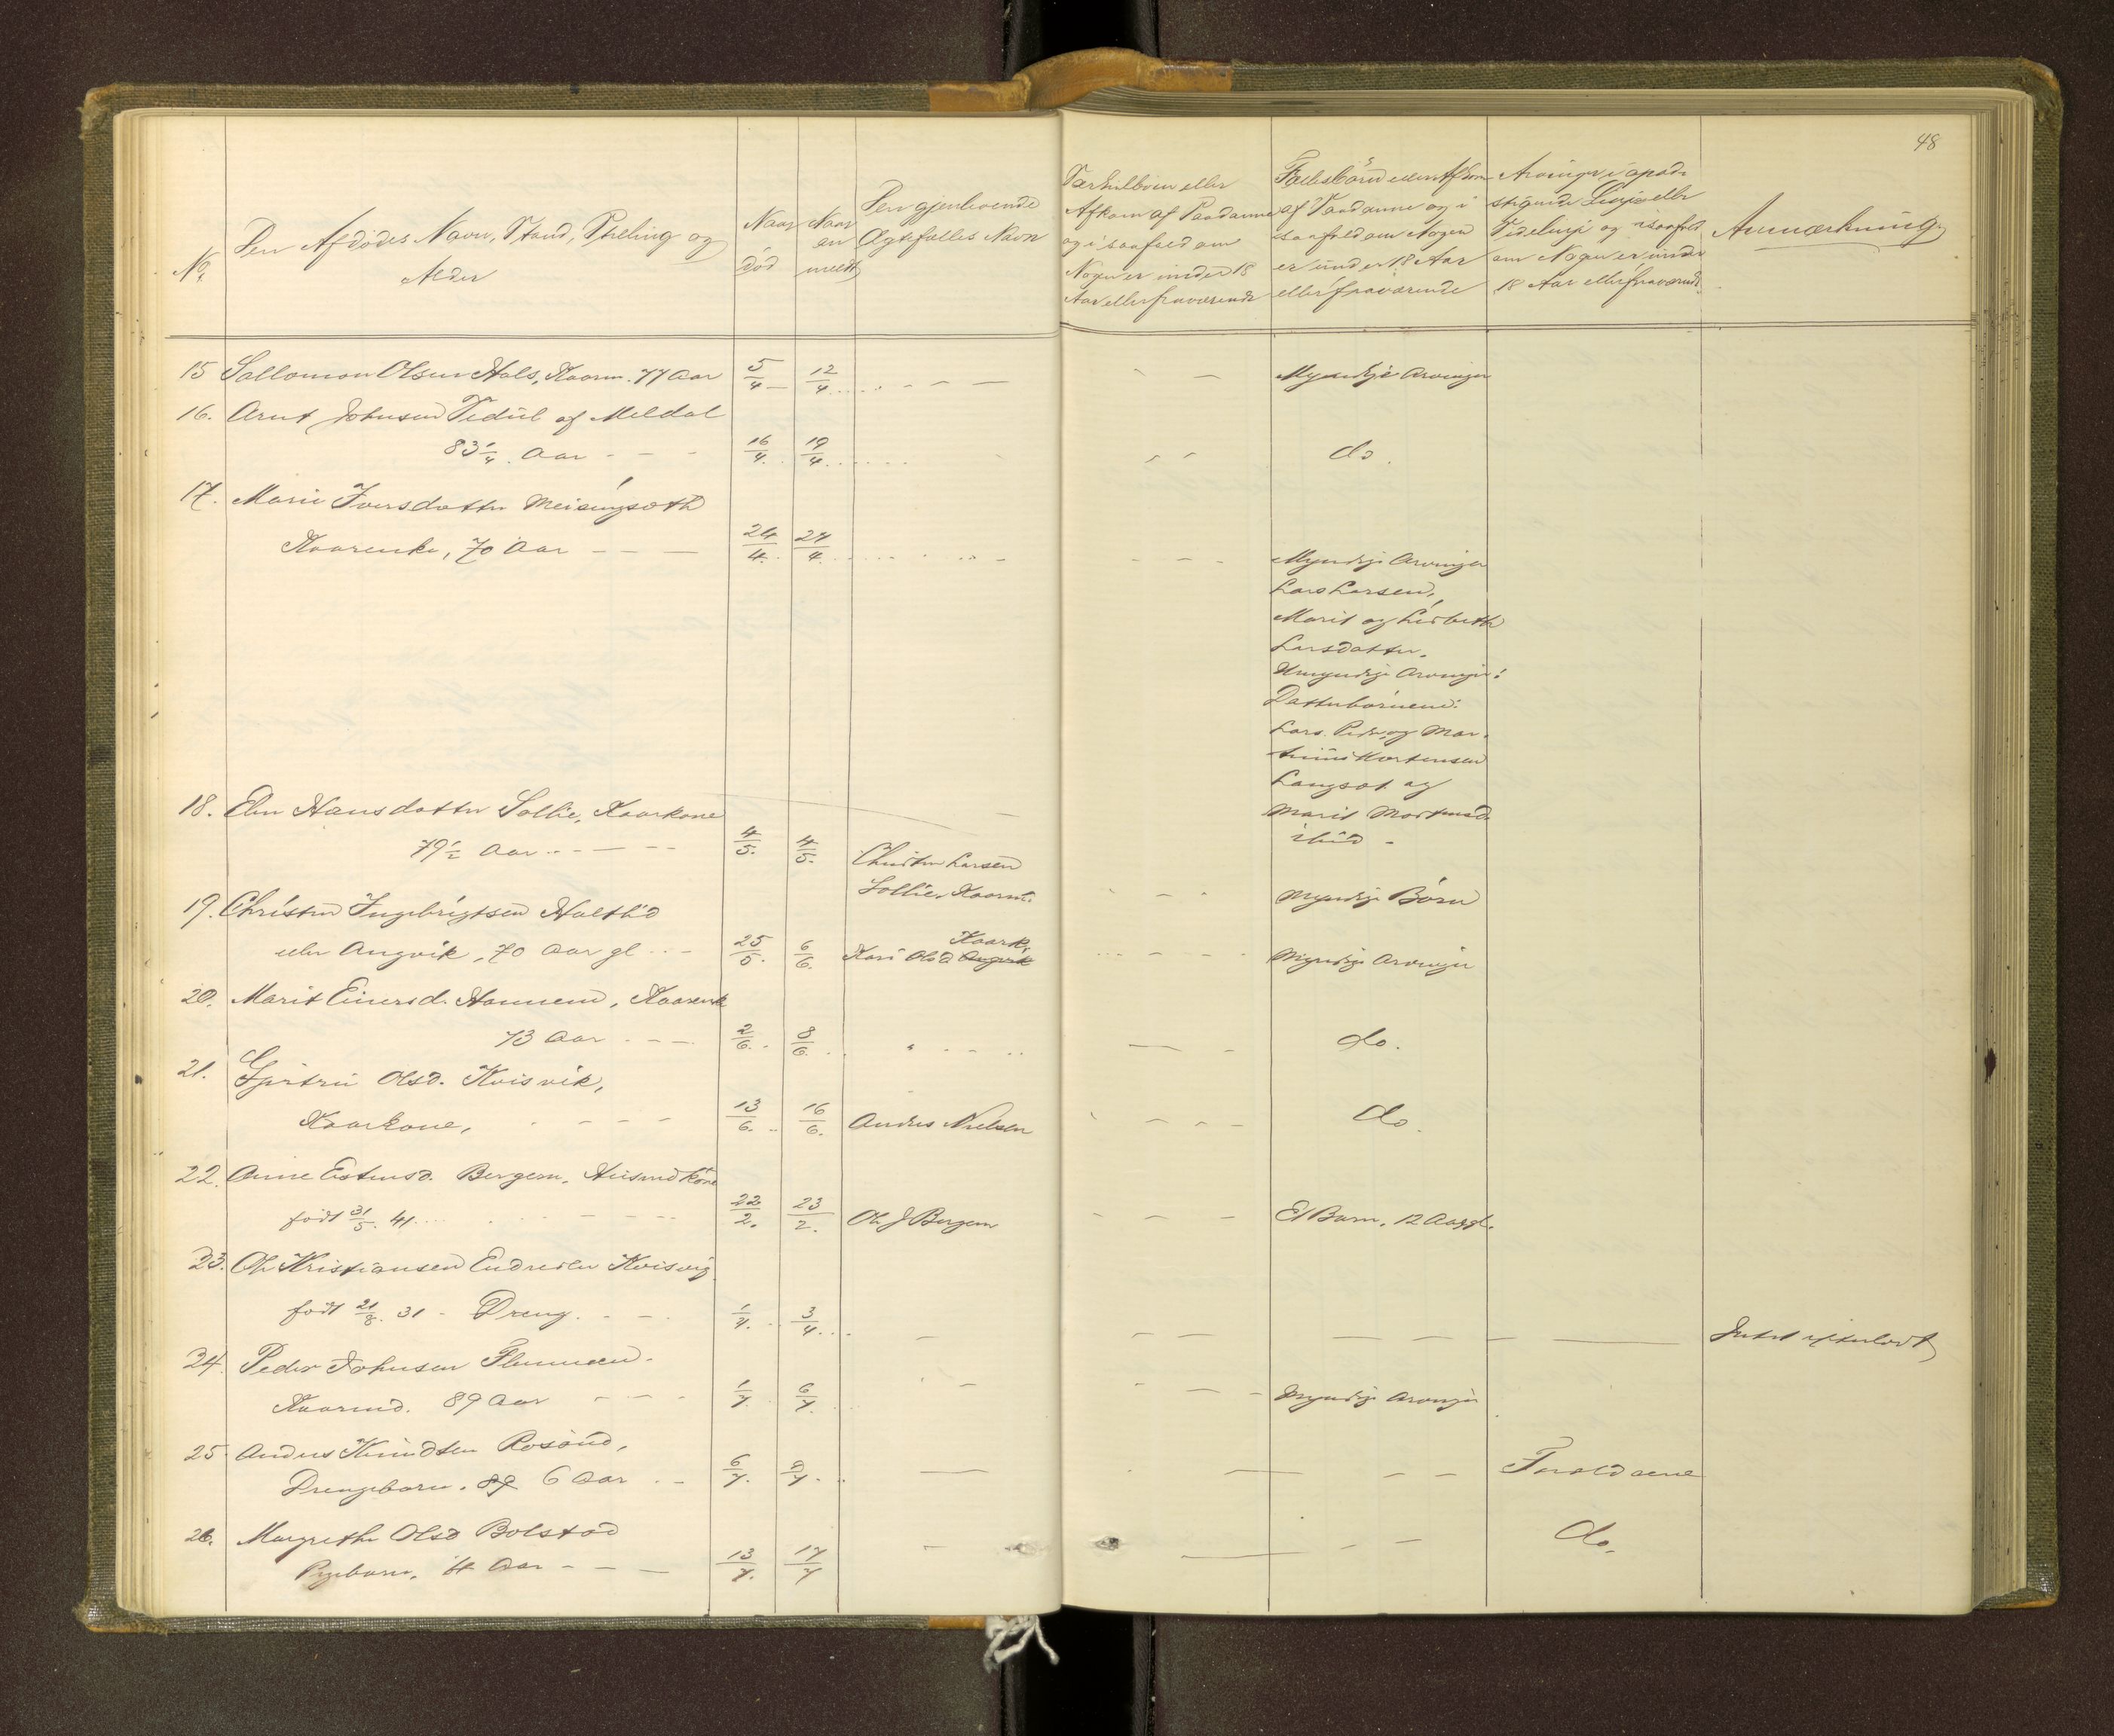 48
No.
Den Afdødes Navn, Stand, Stilling og
Alder
Naar
død
Naar
an
meldt
Den gjenlevende
Ægtefælles Navn
Særkulbørn eller
Afkom af Saadanne
og i saafald om
Nogen er under 18
Aar eller fraværende
Fællesbørn eller Afkom
af Saadanne og i
saafald om Nogen
er under 18 Aar
eller fraværende
Arvinger i opad-
stigende Linje eller
Sidelinje og i saafald
om Nogen er under
18 Aar eller fraværende
Anmærkning
15 Sallomon Olsen Hals, Kaarm. 77 Aar 5/4 12/4 Myndige Arvinger
16. Arnt Johnsen af Meldal
83 1/4 Aar 16/4 19/4 do.
17. Marie Iversdatter Meisingsæth
Kaarenke, 70 Aar 24/4 27/4 Myndige Arvinger
Lars Larsen,
Marit og Lisbeth
Larsdatter.
Umyndige Arvinger:
Datterbørnene:
Lars, Peder og Mar-
Mortensen
Langsæt og
Marit Mortensd.
ibid
18. Elen Hansdatter Sollie, Kaarkone
79 1/2 Aar 4/5. 4/5. Christen Larsen
Sollie, Kaarm. Myndige Børn
19. Christen Ingebrigtsen Holtlid
eller Angvik, 70 Aar gl 25/5. 6/6. Kari Olsd Angvik Kaark. Myndige Arvinger
20. Marit Einersd. Hammeren, Kaarenk
73 Aar 2/6. 8/6. do.
21. Gjertru Olsd. Kvisvik,
Kaarkone, 13/6. 16/6. Andres Nielsen do.
22. Anne Estensd. Bergem, Husmdkone
født 31/5. 41 22/2. 23/2. Ole J Bergem Et Barn, 12 Aar gl.
23. Ole Kristiansen Endreslen Kvisvig
født 21/8. 31 - Dreng. 1/4. 3/4. Intet efterladt
24. Peder Johnsen Flemmen.
Kaarmd. 89 Aar 1/7. 6/7. Myndige Arvinger
25. Anders Knudsen Rosand,
Drengebarn. 89 6 Aar 6/7. 9/7. Forældrene
26. Margrethe Olsd Bolstad
Pigebarn, 4 Aar 13/7. 17/7 do.